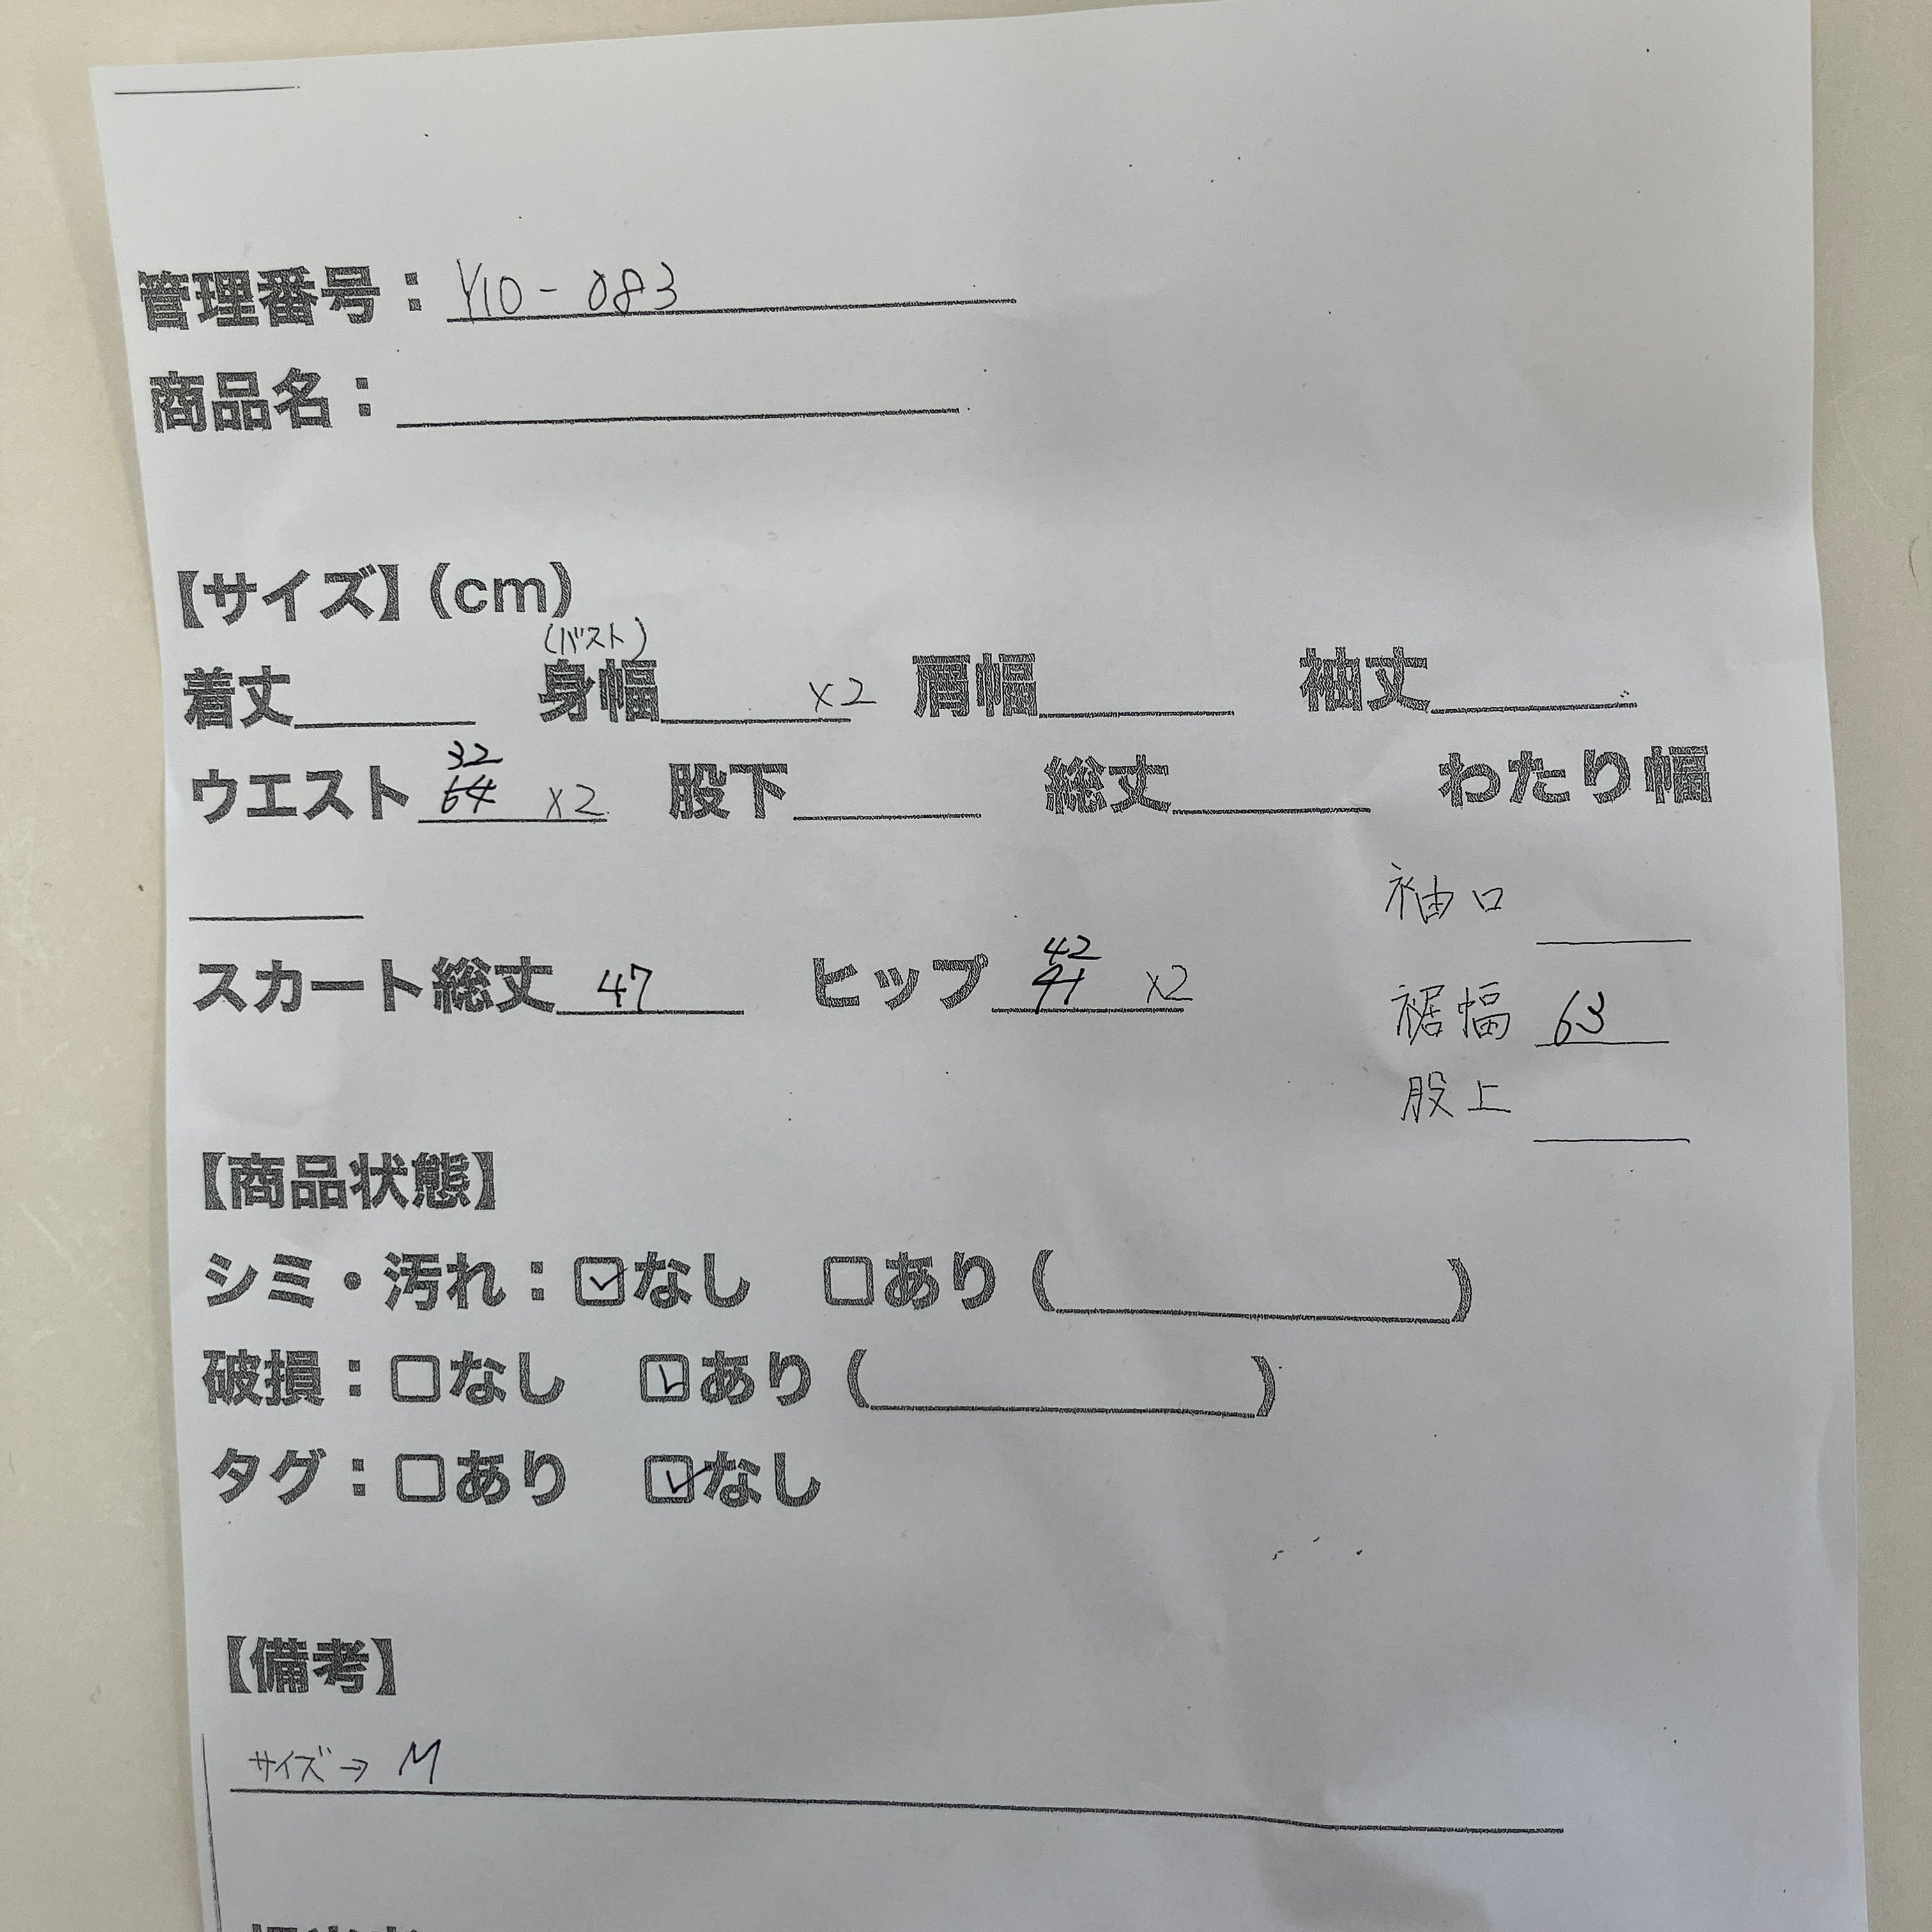 管理番号：Y10-083
商品名：
【サイズ】(cm)
(バスト)
着丈 身幅 ×2 肩幅 袖丈
32
ウエスト 64 ×2 股下 総丈 わたり幅
袖口
42
スカート総丈 47 ヒップ ×2
裾幅 63
股上
【商品状態】
シミ・汚れ：☑なし □あり ( )
破損：□なし ☑あり ( )
タグ：□あり ☑なし
【備考】
サイズ→ M